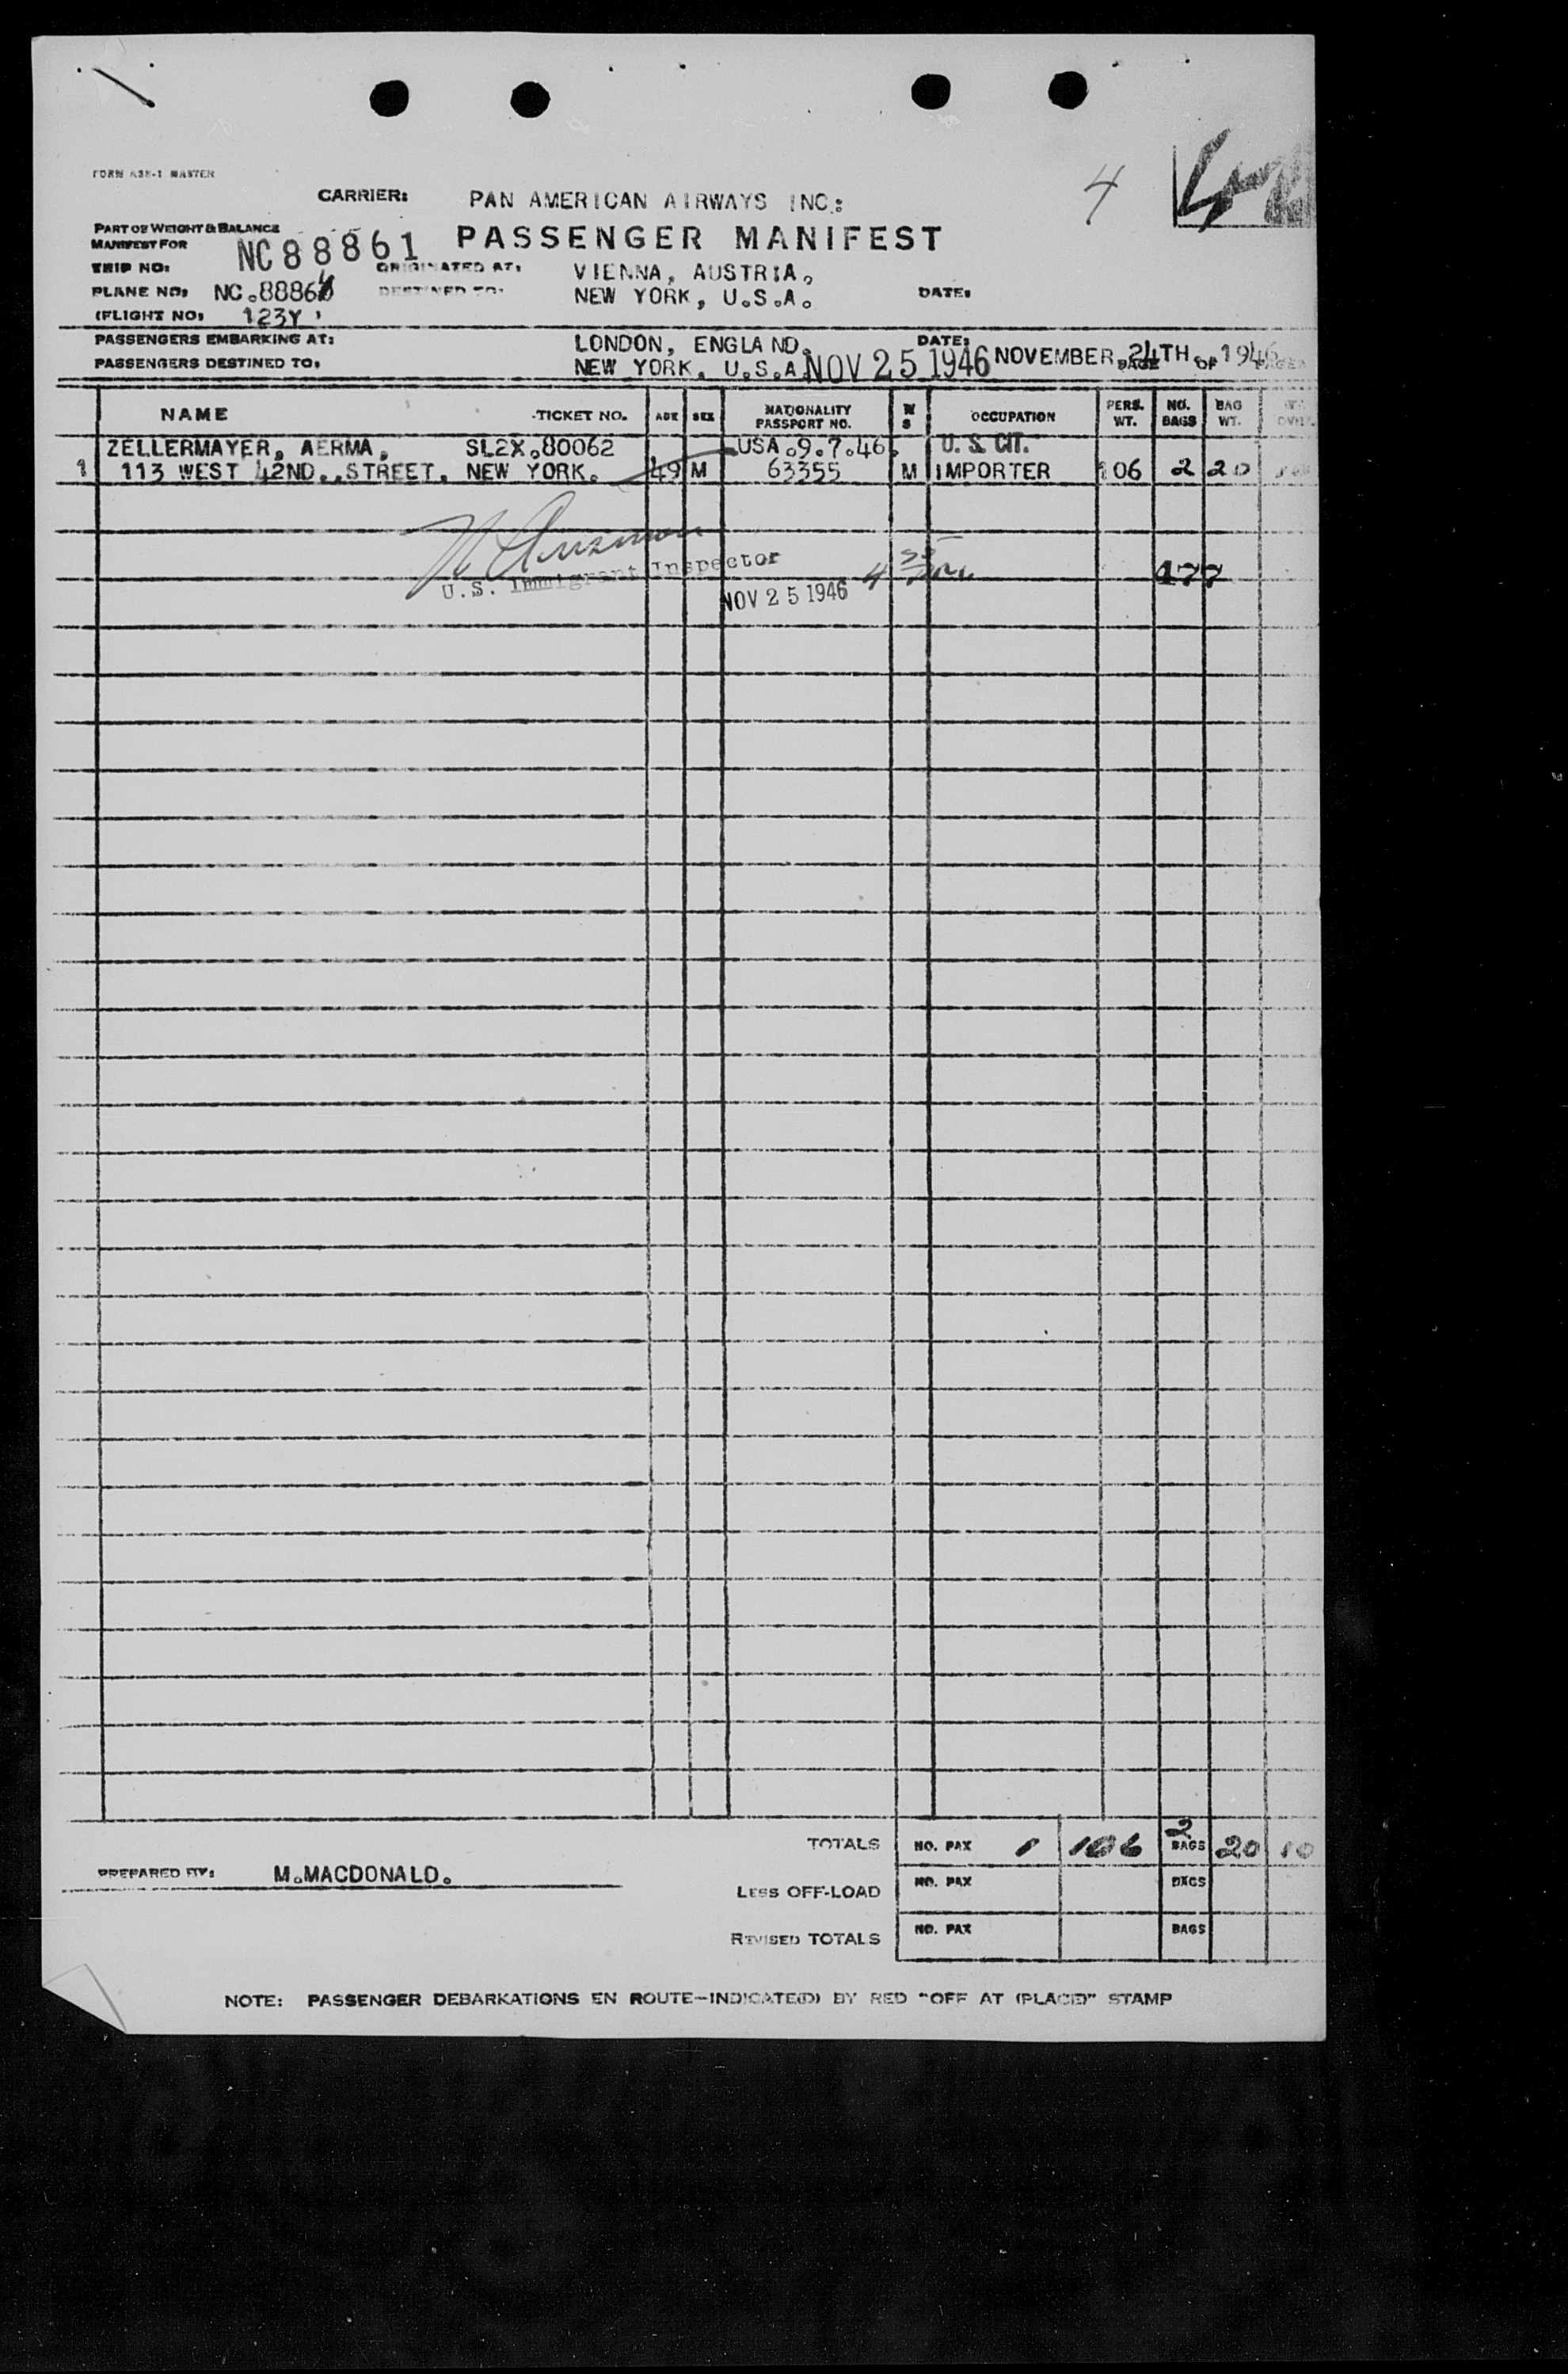 4
FORM ASE-1 MASTER
CARRIER: PAN AMERICAN AIRWAYS INC:
PART OF WEIGHT & BALANCE
MANIFEST FOR NC88861 PASSENGER MANIFEST
TRIP NO: ORIGINATED AT: VIENNA, AUSTRIA.
PLANE NO: NC.8886 DESTINED TO: NEW YORK, U.S.A. DATE:
(FLIGHT NO: 123Y
PASSENGERS EMBARKING AT: LONDON, ENGLAND. DATE:
PASSENGERS DESTINED TO: NEW YORK, U.S.A. NOV 25 1946 NOVEMBER 24TH. 1946 PAGE OF
NAME TICKET NO. AGE SEX NATIONALITY PASSPORT NO. M S OCCUPATION PERS. WT. NO. BAGS BAG WT.
ZELLERMAYER, AERMA. SL2X.80062 USA.9.7.46. U. S. CIT.
1 113 WEST 42ND.,STREET. NEW YORK. 49 M 63355 M IMPORTER 106 2 20
U.S. Immigrant Inspector
NOV 25 1946 4 35
177
TOTALS NO. PAX 1 106 2 BAGS 20 10
PREPARED BY: M.MACDONALD.
LESS OFF-LOAD NO. PAX BAGS
REVISED TOTALS NO. PAX BAGS
NOTE: PASSENGER DEBARKATIONS EN ROUTE—INDICATE(D) BY RED "OFF AT (PLACE)" STAMP